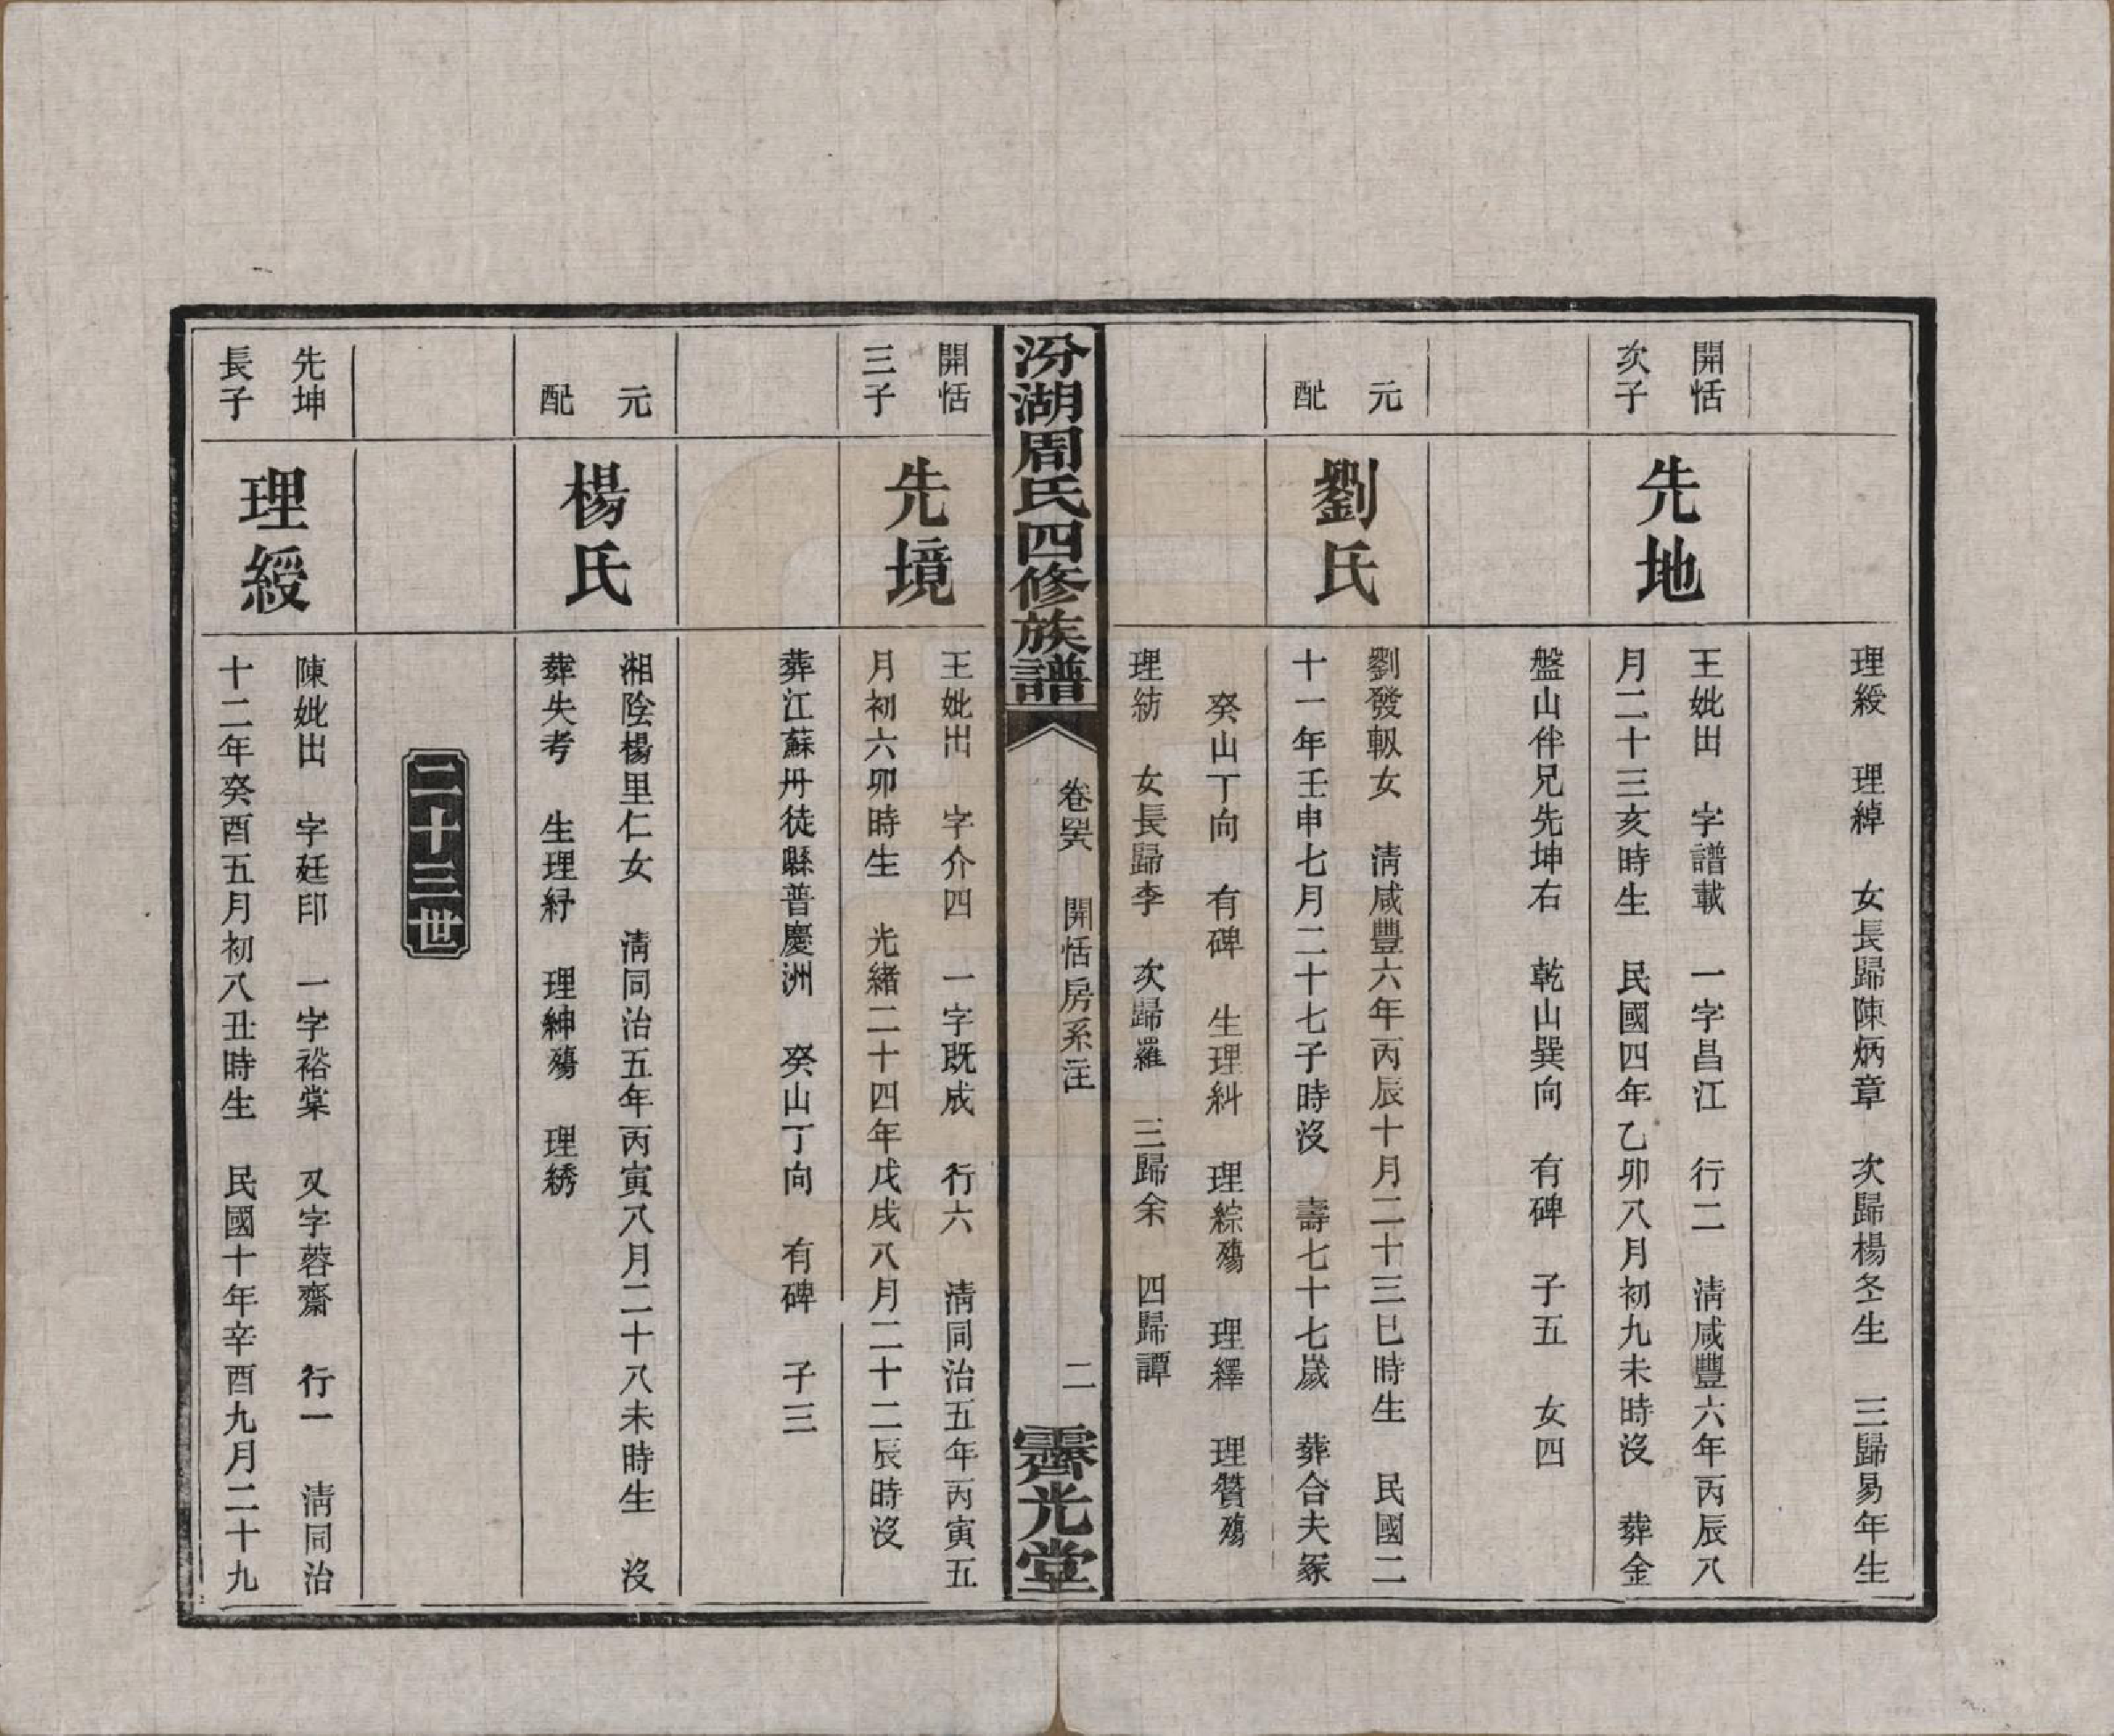 理綬　理綽　女長歸陳炳章　次歸楊冬生　三歸易年生
開恬
次子
先地
王妣出　字譜載　一字昌江　行二　清咸豐六年丙辰八
月二十三亥時生　民國四年乙卯八月初九未時沒　葬金
盤山伴兄先坤右　乾山巽向　有碑　子五　女四
元
配
劉氏
劉發軔女　清咸豐六年丙辰十月二十三巳時生　民國二
十一年壬申七月二十七子時沒　壽七十七歲　葬合夫冢
癸山丁向　有碑　生理糾　理綜殤　理繹　理纘殤
理紡　女長歸李　次歸羅　三歸余　四歸譚
汾湖周氏四修族譜
卷
開恬房系注
二
霽光堂
開恬
三子
先境
王妣出　字介四　一字既成　行六　清同治五年丙寅五
月初六卯時生　光緒二十四年戊戌八月二十二辰時沒
葬江蘇丹徒縣普慶洲　癸山丁向　有碑　子三
元
配
楊氏
湘陰楊里仁女　清同治五年丙寅八月二十八未時生　沒
葬失考　生理紓　理紳殤　理綉
二十三世
先坤
長子
理綬
陳妣出　字廷印　一字裕棠　又字蓉齋　行一　清同治
十二年癸酉五月初八丑時生　民國十年辛酉九月二十九